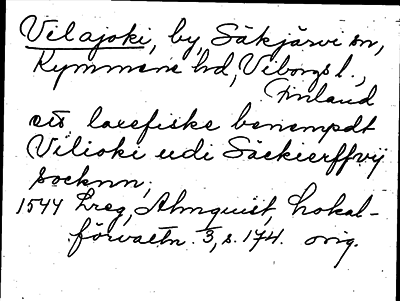 Vilajoki, by, Säkjärvi sn,
Kymmene hd, Viborgs l.,
Finland
ett laxefiske benempdt
Vilioki udi Säckierffvij
socknn,
1544 Ereg, Almquist, Lokal-
förvaltn. 3, s. 174. orig.